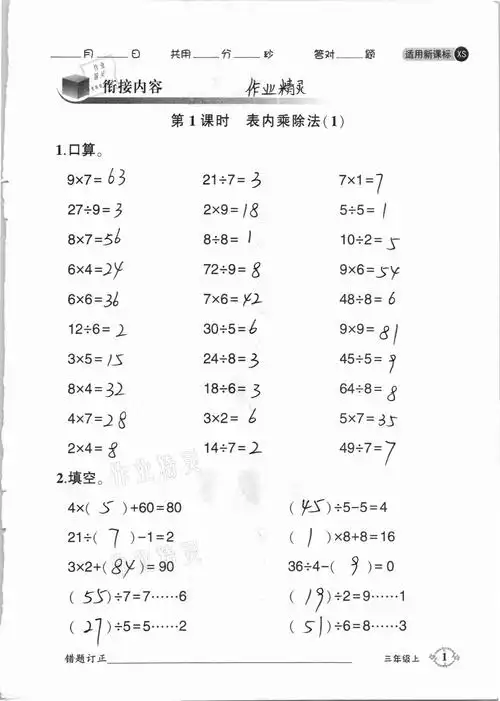 ____月____日 共用____分____秒 答对____题 适用新课标 XS
衔接内容 作业精灵
第1课时 表内乘除法(1)
1.口算。
9×7=63 21÷7=3 7×1=7
27÷9=3 2×9=18 5÷5=1
8×7=56 8÷8=1 10÷2=5
6×4=24 72÷9=8 9×6=54
6×6=36 7×6=42 48÷8=6
12÷6=2 30÷5=6 9×9=81
3×5=15 24÷8=3 45÷5=9
8×4=32 18÷6=3 64÷8=8
4×7=28 3×2=6 5×7=35
2×4=8 14÷7=2 49÷7=7
作业精灵
2.填空。
4×(5)+60=80 (45)÷5-5=4
21÷(7)-1=2 (1)×8+8=16
作业精灵
3×2+(84)=90 36÷4-(9)=0
(55)÷7=7……6 (19)÷2=9……1
(27)÷5=5……2 (51)÷6=8……3
错题订正____ 三年级上 1